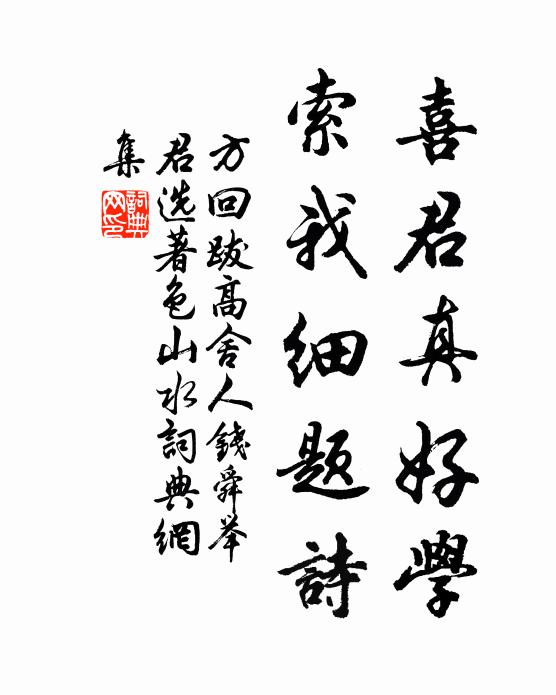 喜君真好學
索我細題詩
方回跋高舍人錢舜举
君选著色山水詞典網
集
詞典网印